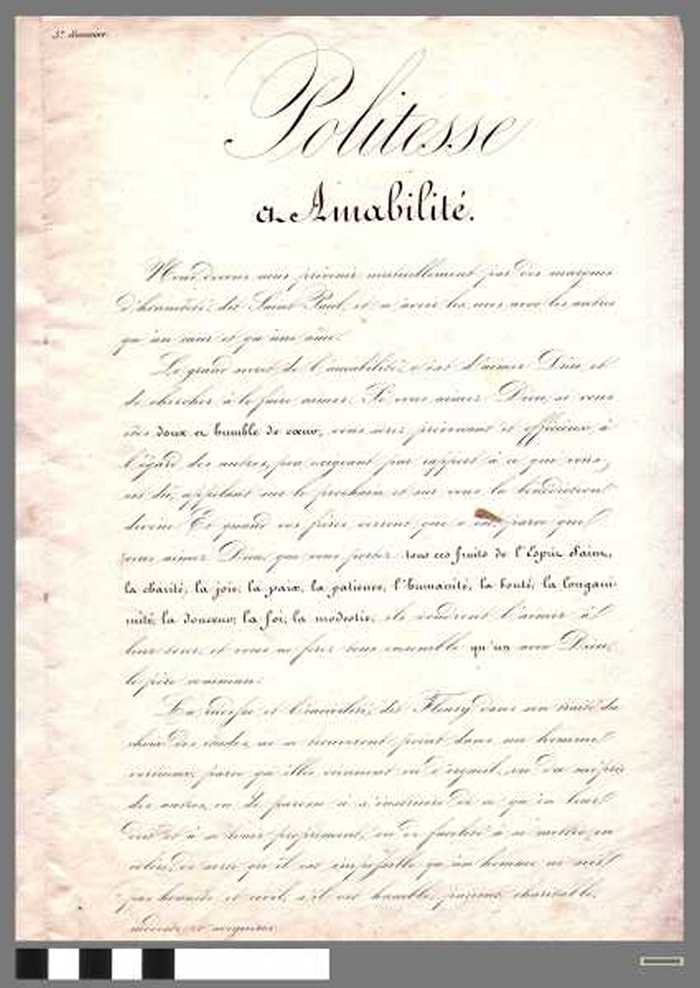 Politesse
et Amabilité.
Nous devons nous prévenir mutuellement par des marques
d'honnêteté, dit Saint Paul, et n'avoir les uns avec les autres
qu'un cœur et qu'une âme.
Le grand secret de l'amabilité, c'est d'aimer Dieu et
de chercher à le faire aimer. Si vous aimez Dieu, si vous
êtes doux et humble de cœur, vous serez prévenant et officieux à
l'égard des autres, peu exigeant par rapport à ce qui vous
est dû, appelant sur le prochain et sur vous la bénédiction
divine. Et quand vos frères verront que c'est parce que
vous aimez Dieu, que vous portez tous ces fruits de l'Esprit Saint,
la charité, la joie, la paix, la patience, l'humanité, la bonté, la longani-
mité, la douceur, la foi, la modestie, ils voudront l'aimer à
leur tour, et vous ne ferez tous ensemble qu'un avec Dieu,
le père commun.
La rudesse et l'incivilité, dit Fleury dans son traité du
choix des études, ne se trouveront point dans un homme
vertueux, parce qu'elles viennent ou d'orgueil, ou du mépris
des autres, ou de paresse à s'instruire de ce qu'on leur
doit et à se tenir proprement, ou de facilité à se mettre en
colère; de sorte qu'il est impossible qu'un homme ne soit
pas honnête et civil, s'il est humble, patient, charitable,
modeste et soigneux.